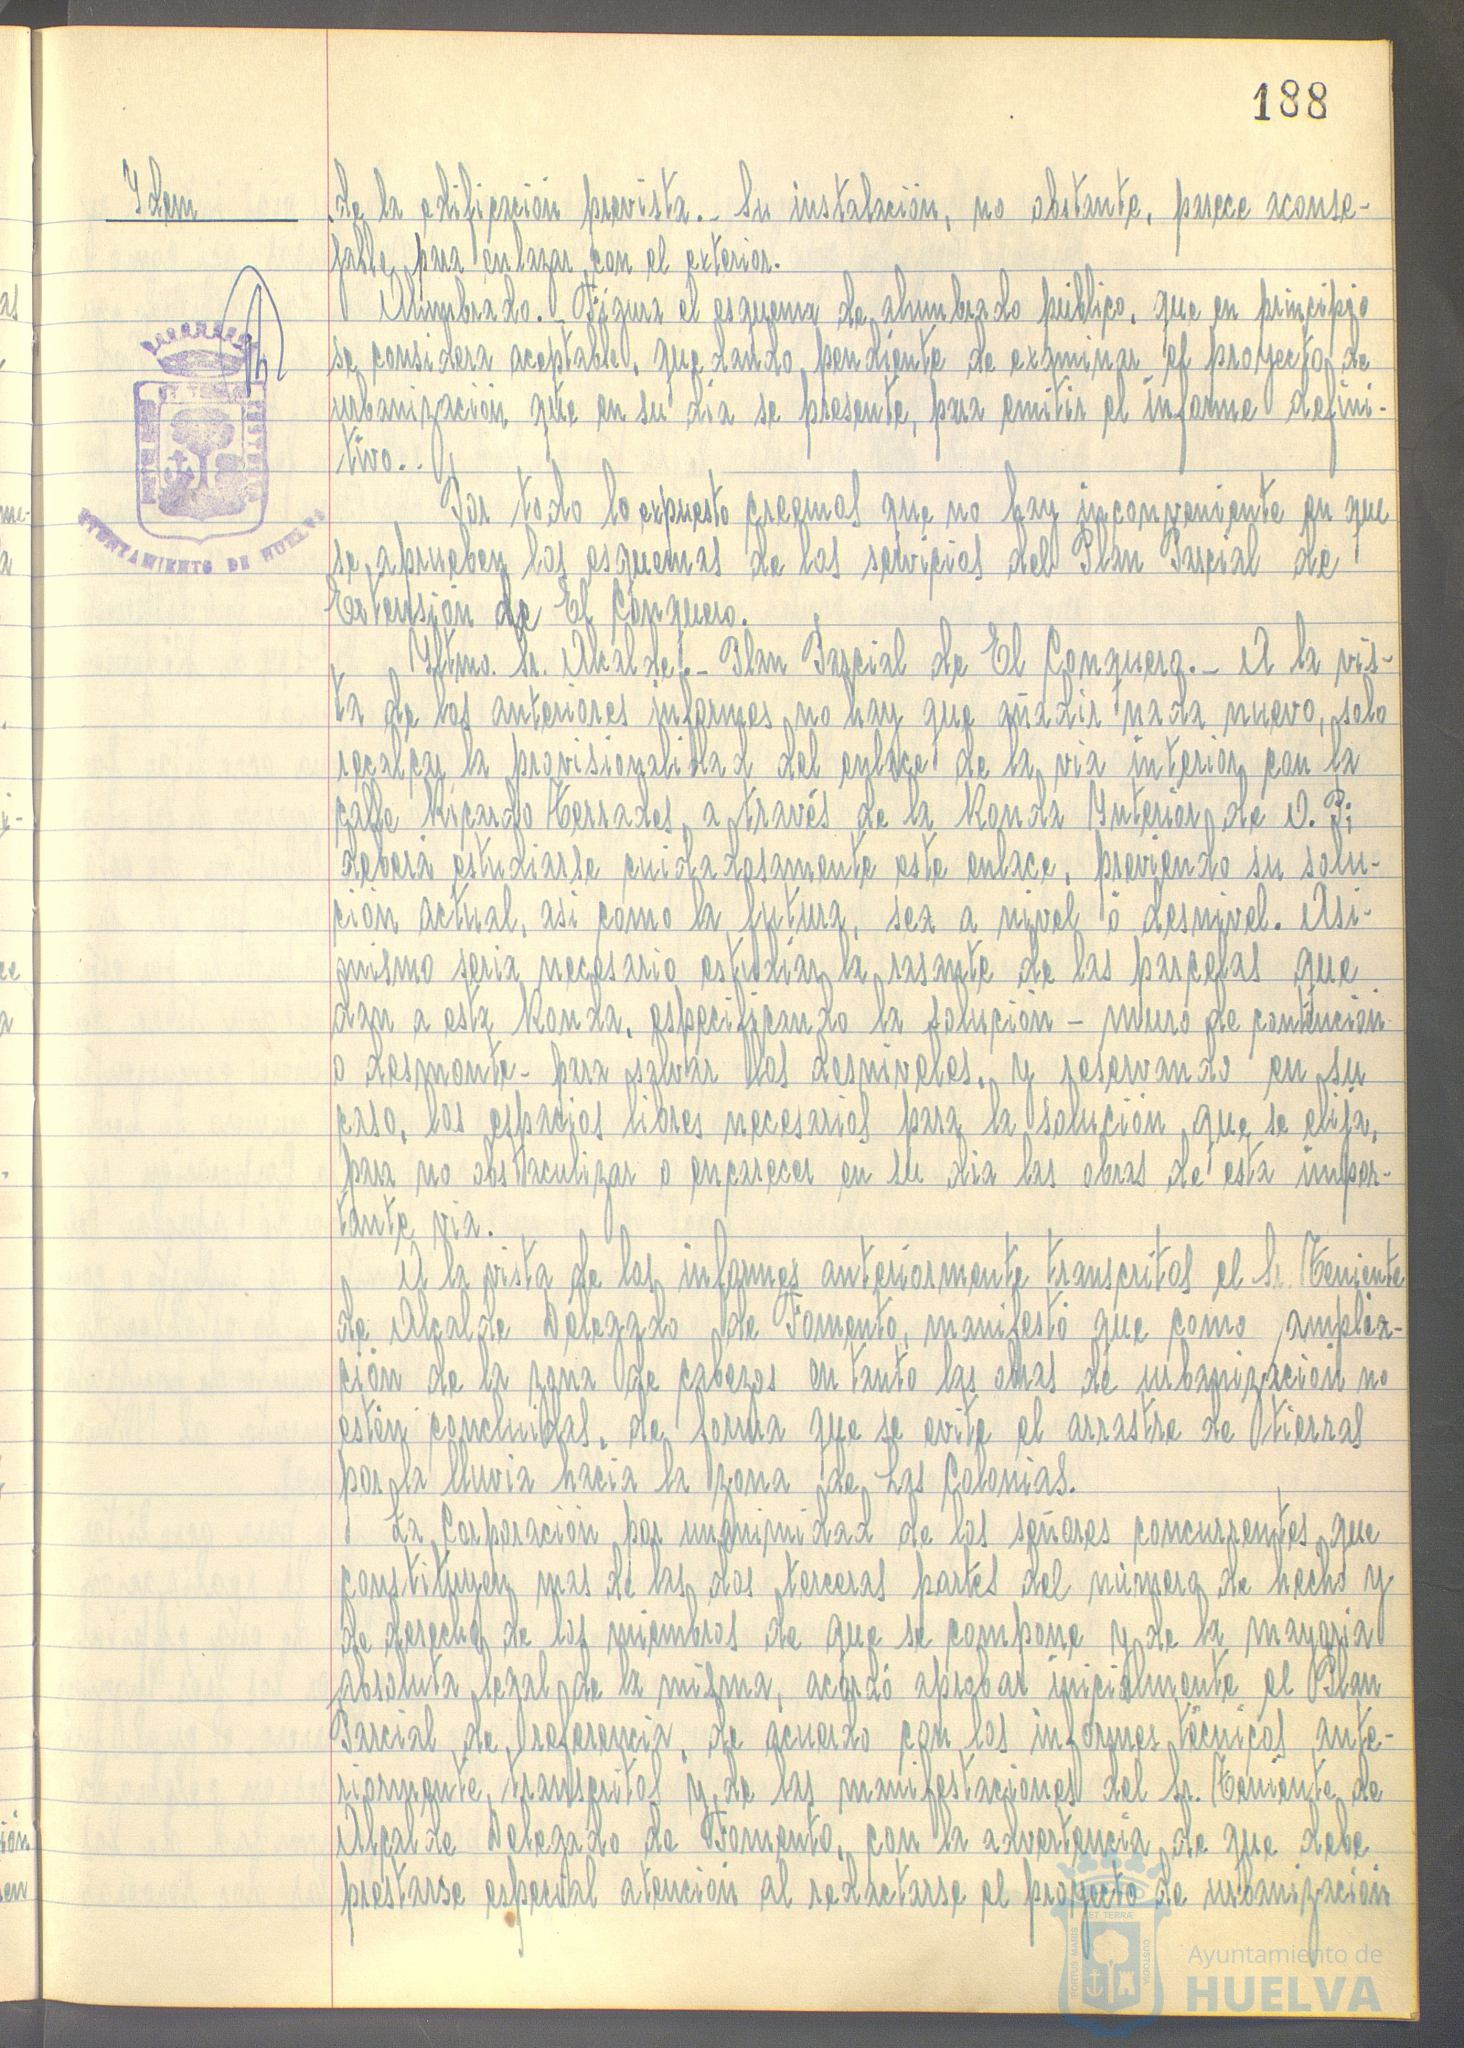 188
Idem
de la edificación prevista.- Su instalación, no obstante, parece aconse-
jable para enlazar con el exterior.
Alumbrado.- Figura el esquema de alumbrado público, que en principio
se considera aceptable, quedando pendiente de examinar el proyecto de
urbanización que en su dia se presente, para emitir el informe defini-
tivo.-
Por todo lo expuesto creemos que no hay inconveniente en que
se aprueben los esquemas de los servicios del Plan Parcial de
Extensión de El Conquero.
Iltmo. Sr. Alcalde:- Plan Parcial de El Conquero.- A la vis-
ta de los anteriores informes no hay que añadir nada nuevo, solo
recalcar la provisionalidad del enlace de la via interior con la
calle Ricardo Terrades a través de la Ronda Interior de O. P;
deberá estudiarse cuidadosamente este enlace, previendo su solu-
ción actual, asi como la futura, sea a nivel ó desnivel. Asi-
mismo seria necesario estudiar la rasante de las parcelas que
dan a esta Ronda, especificando la solución - muro de contención
o desmonte- para salvar los desniveles, y reservando en su
caso, los espacios libres necesarios para la solución que se elija,
para no obstaculizar o encarecer en su dia las obras de esta impor-
tante via.
A la vista de los informes anteriormente transcritos el Sr. Teniente
de Alcalde Delegado de Fomento, manifestó que como amplia-
ción de la zona de cabezos en tanto las obras de urbanización no
estén concluidas, de forma que se evite el arrastre de tierras
por la lluvia hacia la zona de Las Colonias.
La Corporación por unanimidad de los señores concurrentes que
constituyen mas de las dos terceras partes del número de hecho y
de derecho de los miembros de que se compone y de la mayoria
absoluta legal de la misma, acordó aprobar inicialmente el Plan
Parcial de referencia, de acuerdo con los informes técnicos ante-
riormente transcritos y de las manifestaciones del Sr. Teniente de
Alcalde Delegado de Fomento, con la advertencia de que debe
prestarse especial atención al redactarse el proyecto de urbanización
AYUNTAMIENTO DE HUELVA
PORTUS MARIS ET TERRÆ CUSTODIA
Ayuntamiento de
HUELVA